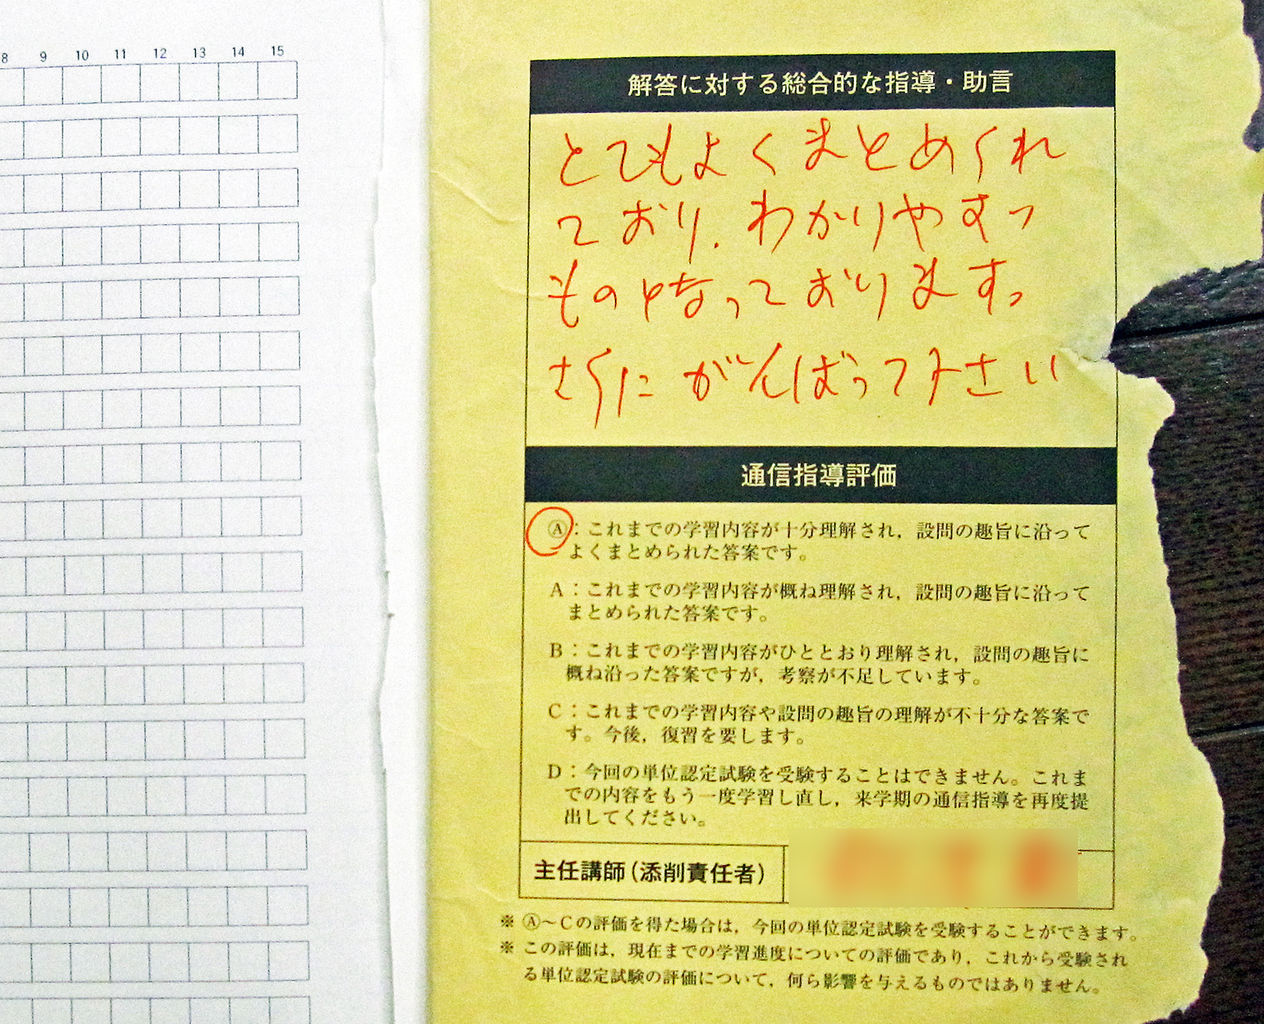 8 9 10 11 12 13 14 15
解答に対する総合的な指導・助言
とてもよくまとめられ
ており、わかりやすい
ものとなっております。
さらにがんばって下さい
通信指導評価
Ⓐ：これまでの学習内容が十分理解され，設問の趣旨に沿って
よくまとめられた答案です。
A：これまでの学習内容が概ね理解され，設問の趣旨に沿って
まとめられた答案です。
B：これまでの学習内容がひととおり理解され，設問の趣旨に
概ね沿った答案ですが，考察が不足しています。
C：これまでの学習内容や設問の趣旨の理解が不十分な答案で
す。今後，復習を要します。
D：今回の単位認定試験を受験することはできません。これま
での内容をもう一度学習し直し，来学期の通信指導を再度提
出してください。
主任講師（添削責任者）
※ Ⓐ～Cの評価を得た場合は，今回の単位認定試験を受験することができます。
※ この評価は，現在までの学習進度についての評価であり，これから受験され
る単位認定試験の評価について，何ら影響を与えるものではありません。